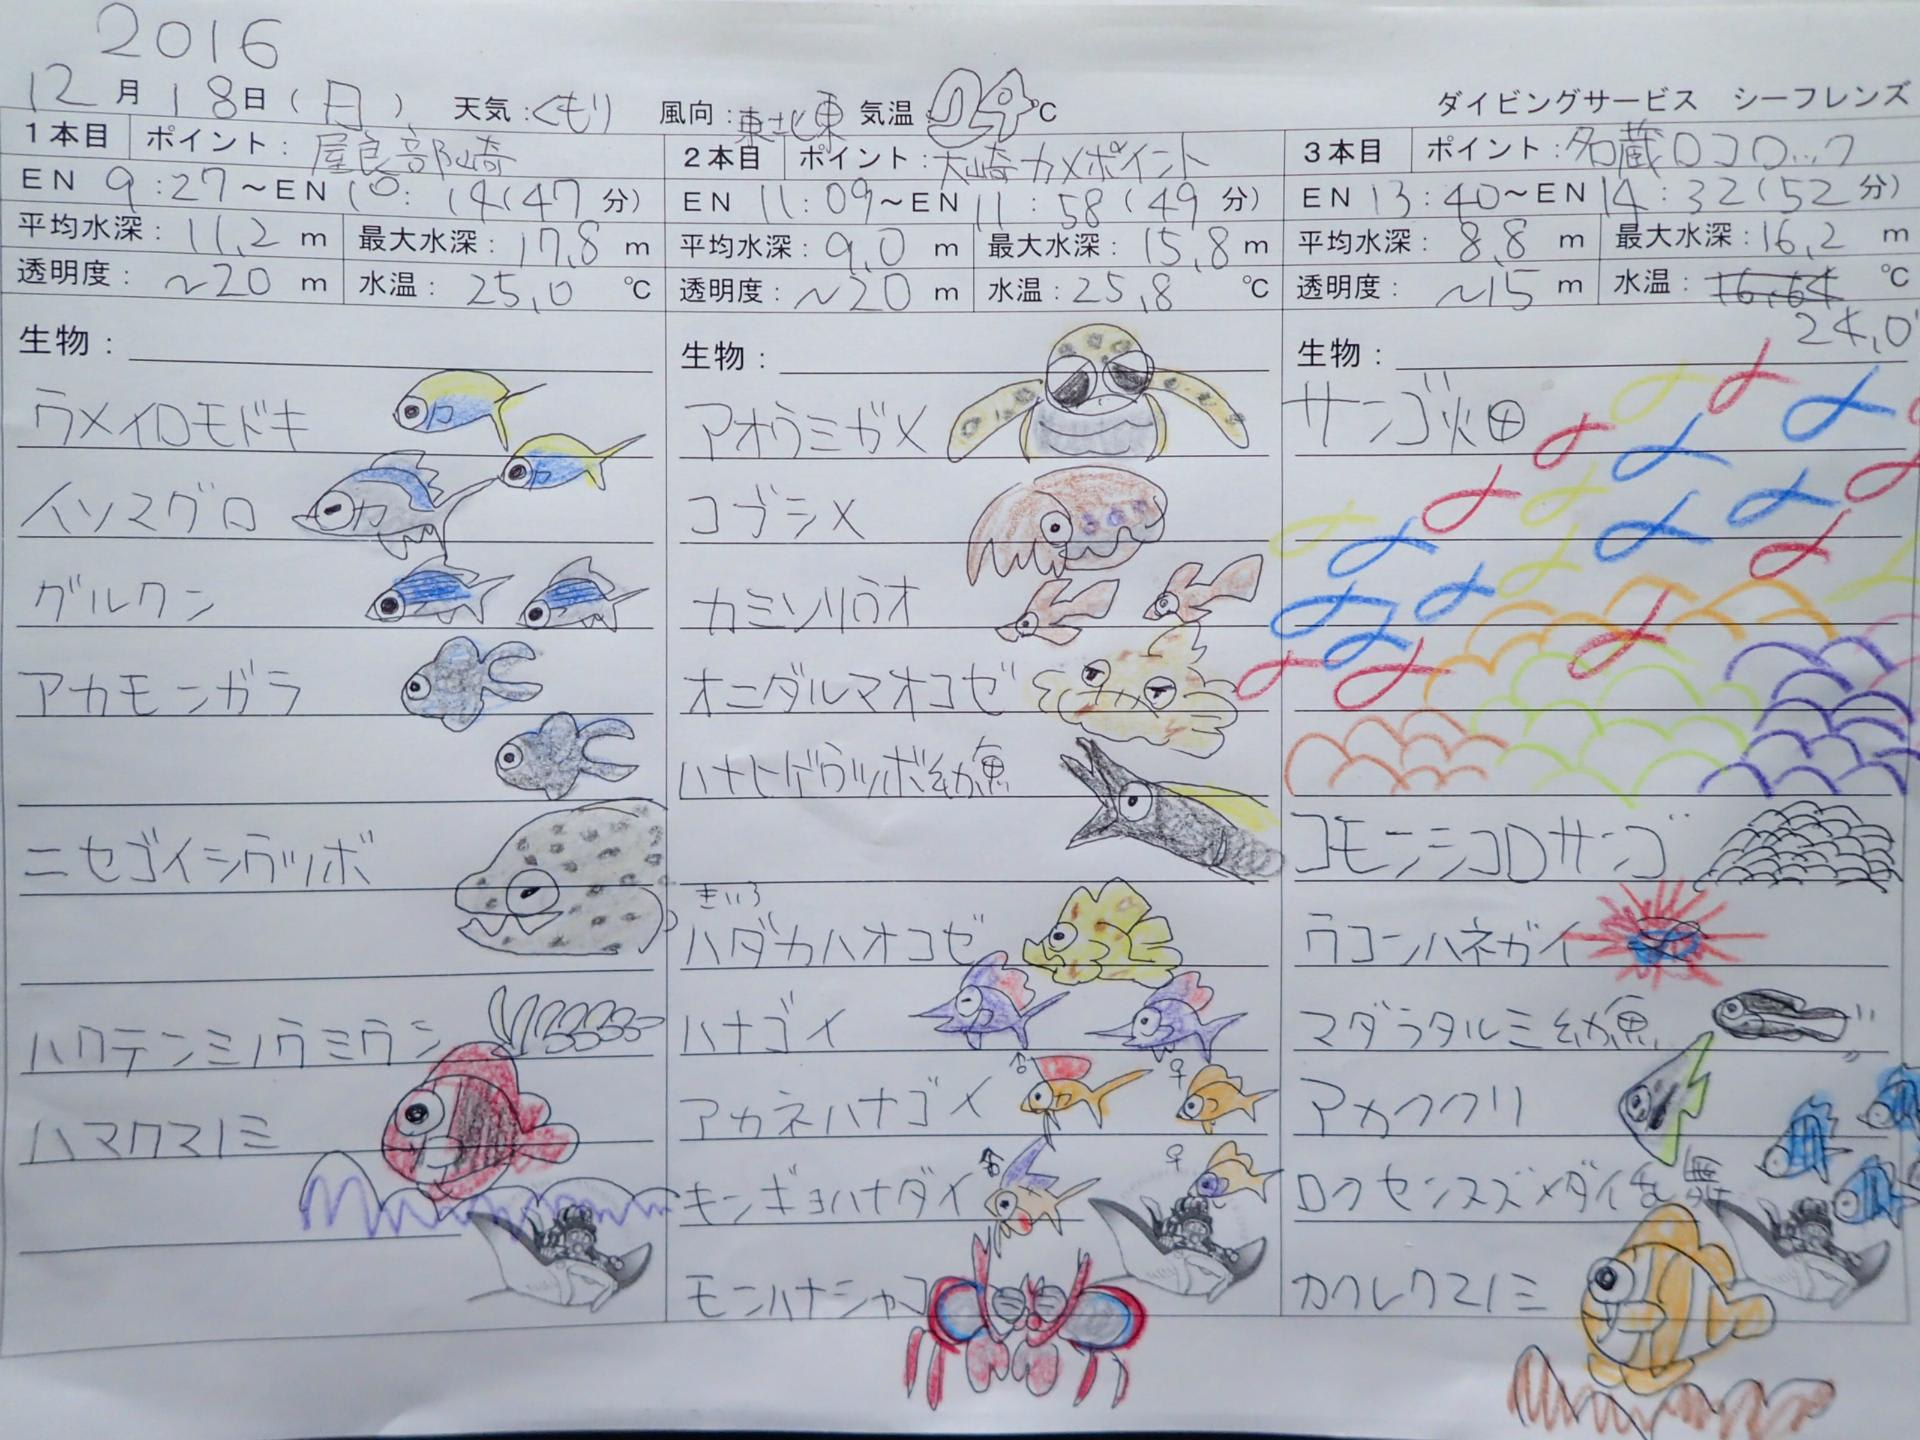 2016
12月18日(日) 天気:くもり 風向:東北東 気温:24℃ ダイビングサービス シーフレンズ
1本目 ポイント:屋良部崎
EN 9:27~EN 10:14(47分)
平均水深:11,2m 最大水深:17,8m
透明度:~20m 水温:25,0℃
生物:
ウメイロモドキ
イソマグロ
グルクン
アカモンガラ
ニセゴイシウツボ
ハクテンミノウミウシ
ハマクマノミ
2本目 ポイント:大崎カメポイント
EN 11:09~EN 11:58(49分)
平均水深:9,0m 最大水深:15,8m
透明度:~20m 水温:25,8℃
生物:
アオウミガメ
コブシメ
カミソリウオ
オニダルマオコゼ
ハナヒゲウツボ幼魚
きいろ
ハダカハオコゼ
ハナゴイ
アカネハナゴイ ♂ ♀
キンギョハナダイ ♂ ♀
モンハナシャコ
3本目 ポイント:名蔵ロコロック
EN 13:40~EN 14:32(52分)
平均水深:8,8m 最大水深:16,2m
透明度:~15m 水温:℃
24,0
生物:
サンゴ畑
コモンシコロサンゴ
ウコンハネガイ
マダラタルミ幼魚
アカククリ
ロクセンスズメダイ乱舞
カクレクマノミ